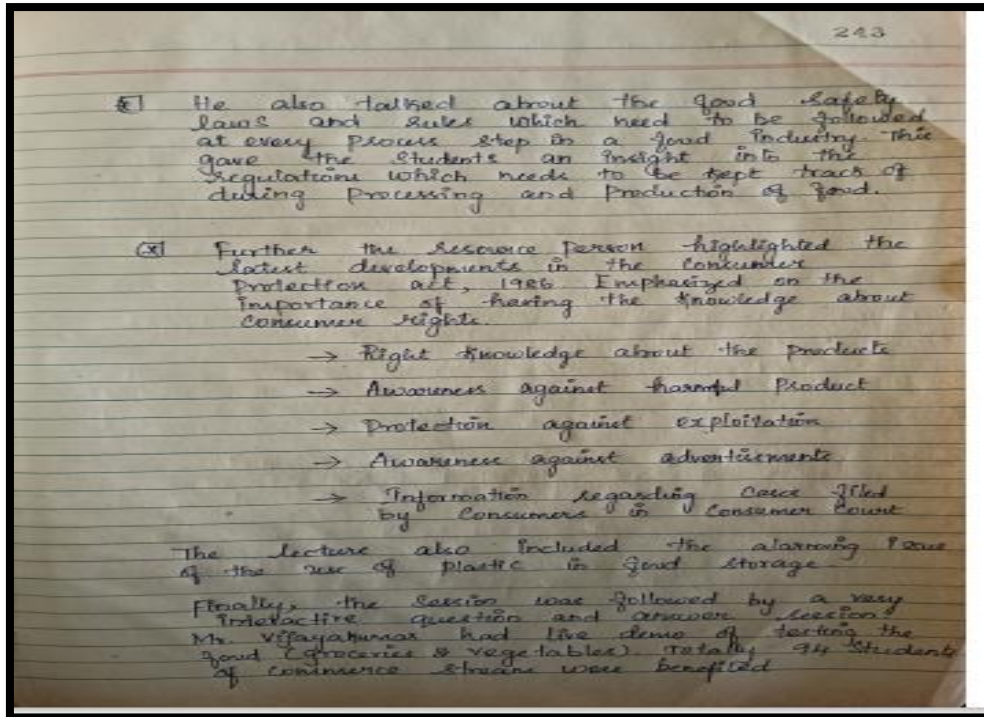 243
He also talked about the food safety
laws and rules which need to be followed
at every process step in a food industry. This
gave the students an insight into the
regulations which needs to be kept track of
during Processing and Production of food.
(x) Further the resource person highlighted the
latest developments in the Consumer
Protection act, 1986 Emphasized on the
importance of having the knowledge about
Consumer rights.
→ Right knowledge about the products
→ Awareness against harmful Product
→ Protection against exploitation
→ Awareness against advertisements
→ Information regarding cases filed
by Consumers in Consumer Court
The lecture also included the alarming issue
of the use of plastic in food storage
Finally, the Session was followed by a very
interactive question and answer session.
Mr. Vijayakumar had live demo of testing the
food (groceries & vegetables). Totally 94 Students
of commerce stream were benefited